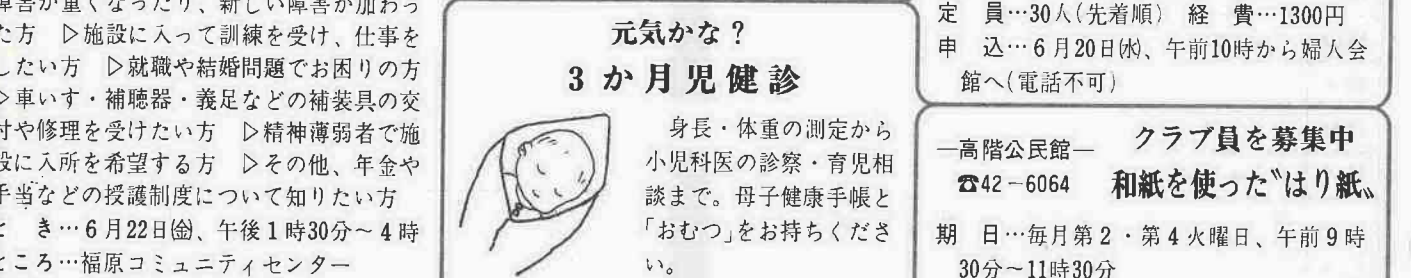 障害が重くなったり、新しい障害が加わっ
た方　▷施設に入って訓練を受け、仕事を
したい方　▷就職や結婚問題でお困りの方
▷車いす・補聴器・義足などの補装具の交
付や修理を受けたい方　▷精神薄弱者で施
設に入所を希望する方　▷その他、年金や
手当などの授護制度について知りたい方
と　き…6月22日㈮、午後1時30分～4時
ところ…福原コミュニティセンター
元気かな？
3か月児健診
身長・体重の測定から
小児科医の診察・育児相
談まで。母子健康手帳と
「おむつ」をお持ちくださ
い。
定　員…30人(先着順)　経　費…1300円
申　込…6月20日㈬、午前10時から婦人会
館へ(電話不可)
―高階公民館―　クラブ員を募集中
☎42－6064　和紙を使った〝はり紙〟
期　日…毎月第2・第4火曜日、午前9時
30分～11時30分